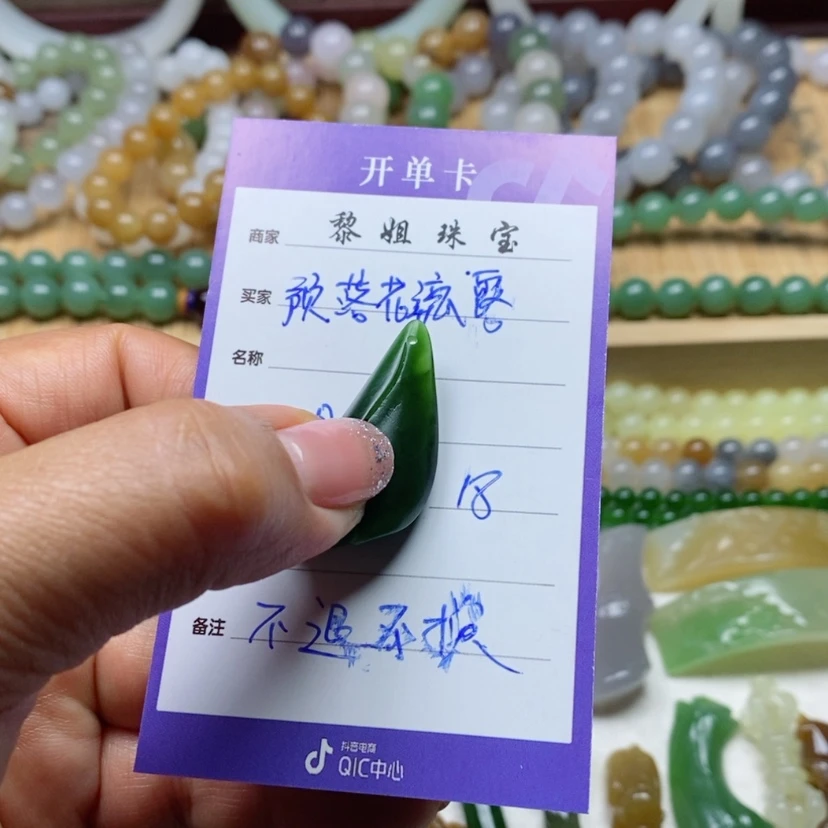 开单卡
商家 黎姐珠宝
买家 花流
名称
备注 不退不换
抖音电商
QIC中心